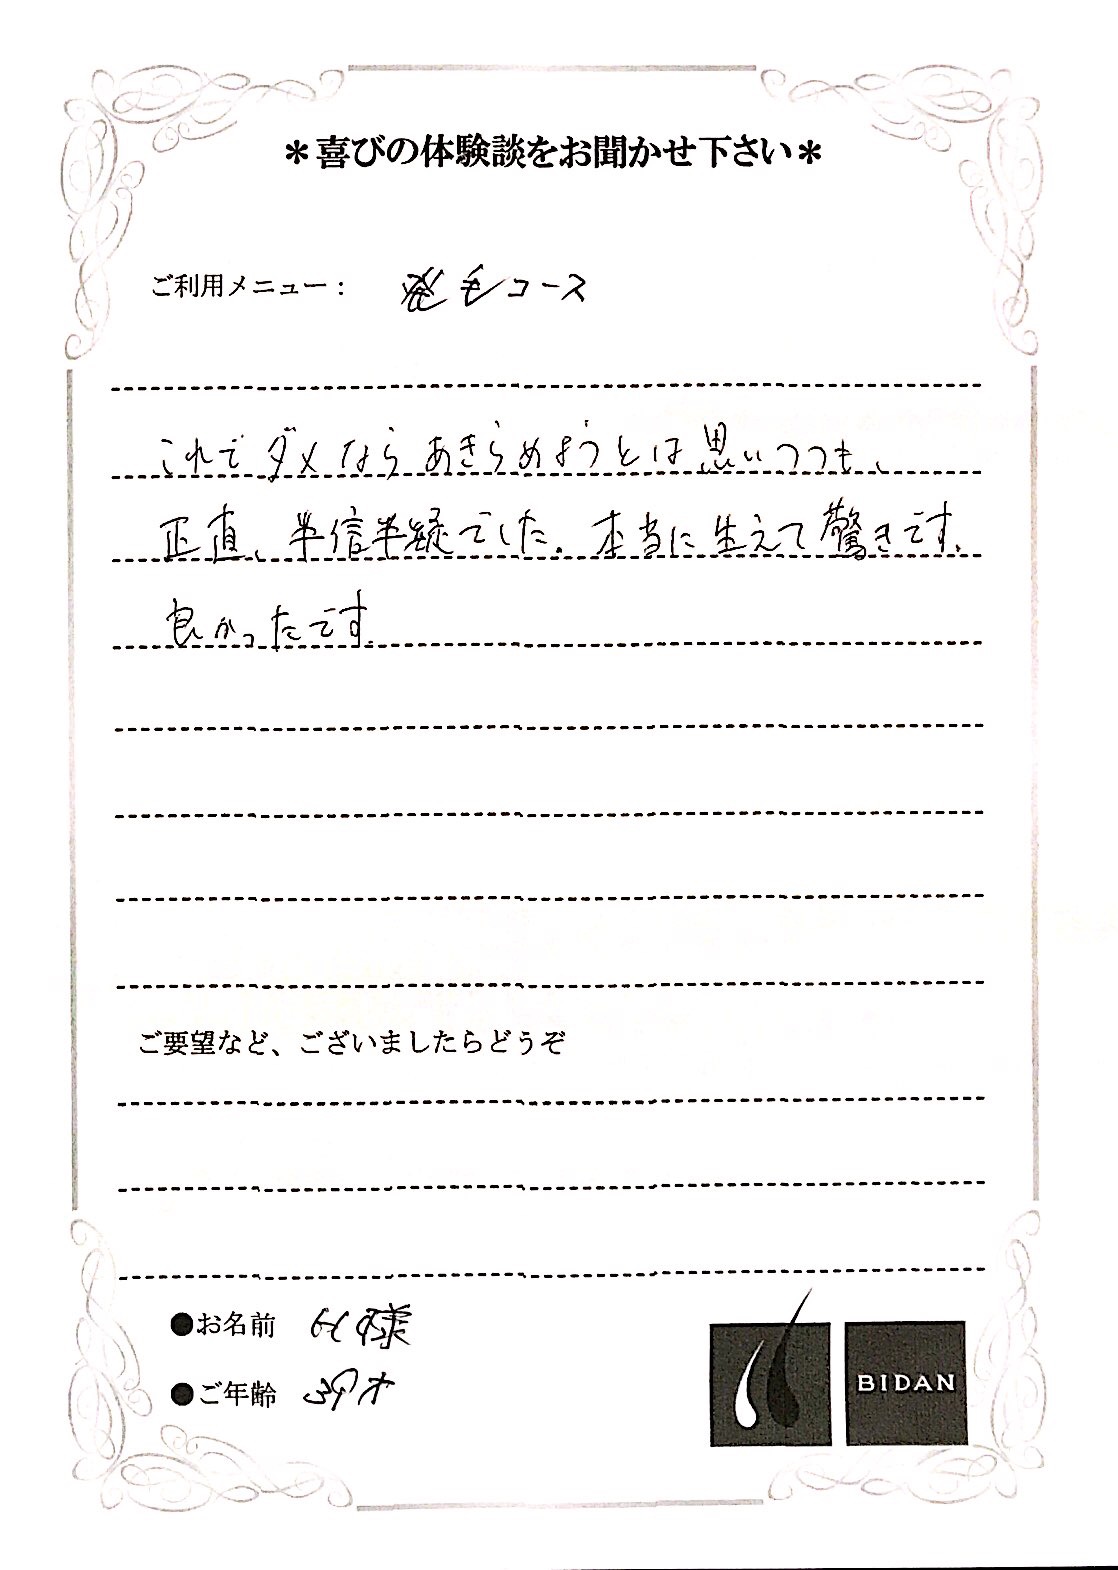 ＊喜びの体験談をお聞かせ下さい＊
ご利用メニュー： 発毛コース
これでダメならあきらめようとは思いつつも、
正直、半信半疑でした。本当に生えて驚きです。
良かったです。
ご要望など、ございましたらどうぞ
●お名前 H様
●ご年齢 39才
BIDAN